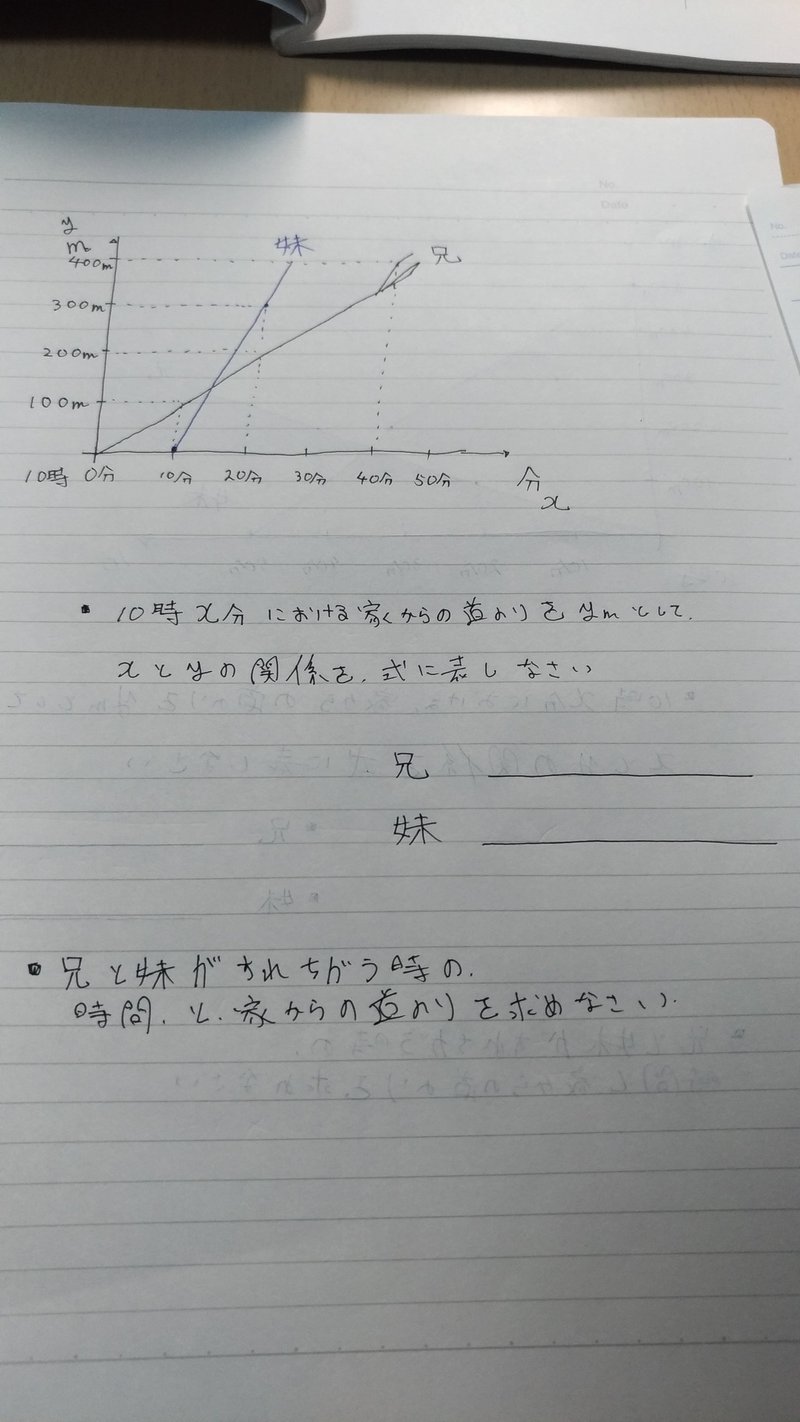 No.
Date
No.
Date
y
m
妹
兄
400m
300m
200m
100m
10時 0分 10分 20分 30分 40分 50分 分
x
・ 10時x分 における家からの道のりをymとして、
xとyの関係を、式に表しなさい
兄
妹
・ 兄と妹がすれちがう時の、
時間、と、家からの道のりを求めなさい。